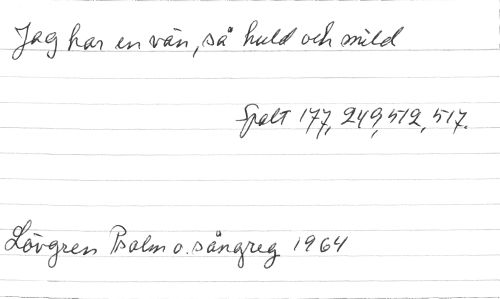 Jag har en vän, så huld och mild
Spalt 177, 249, 512, 517.
Lövgren Psalm o. sångreg 1964